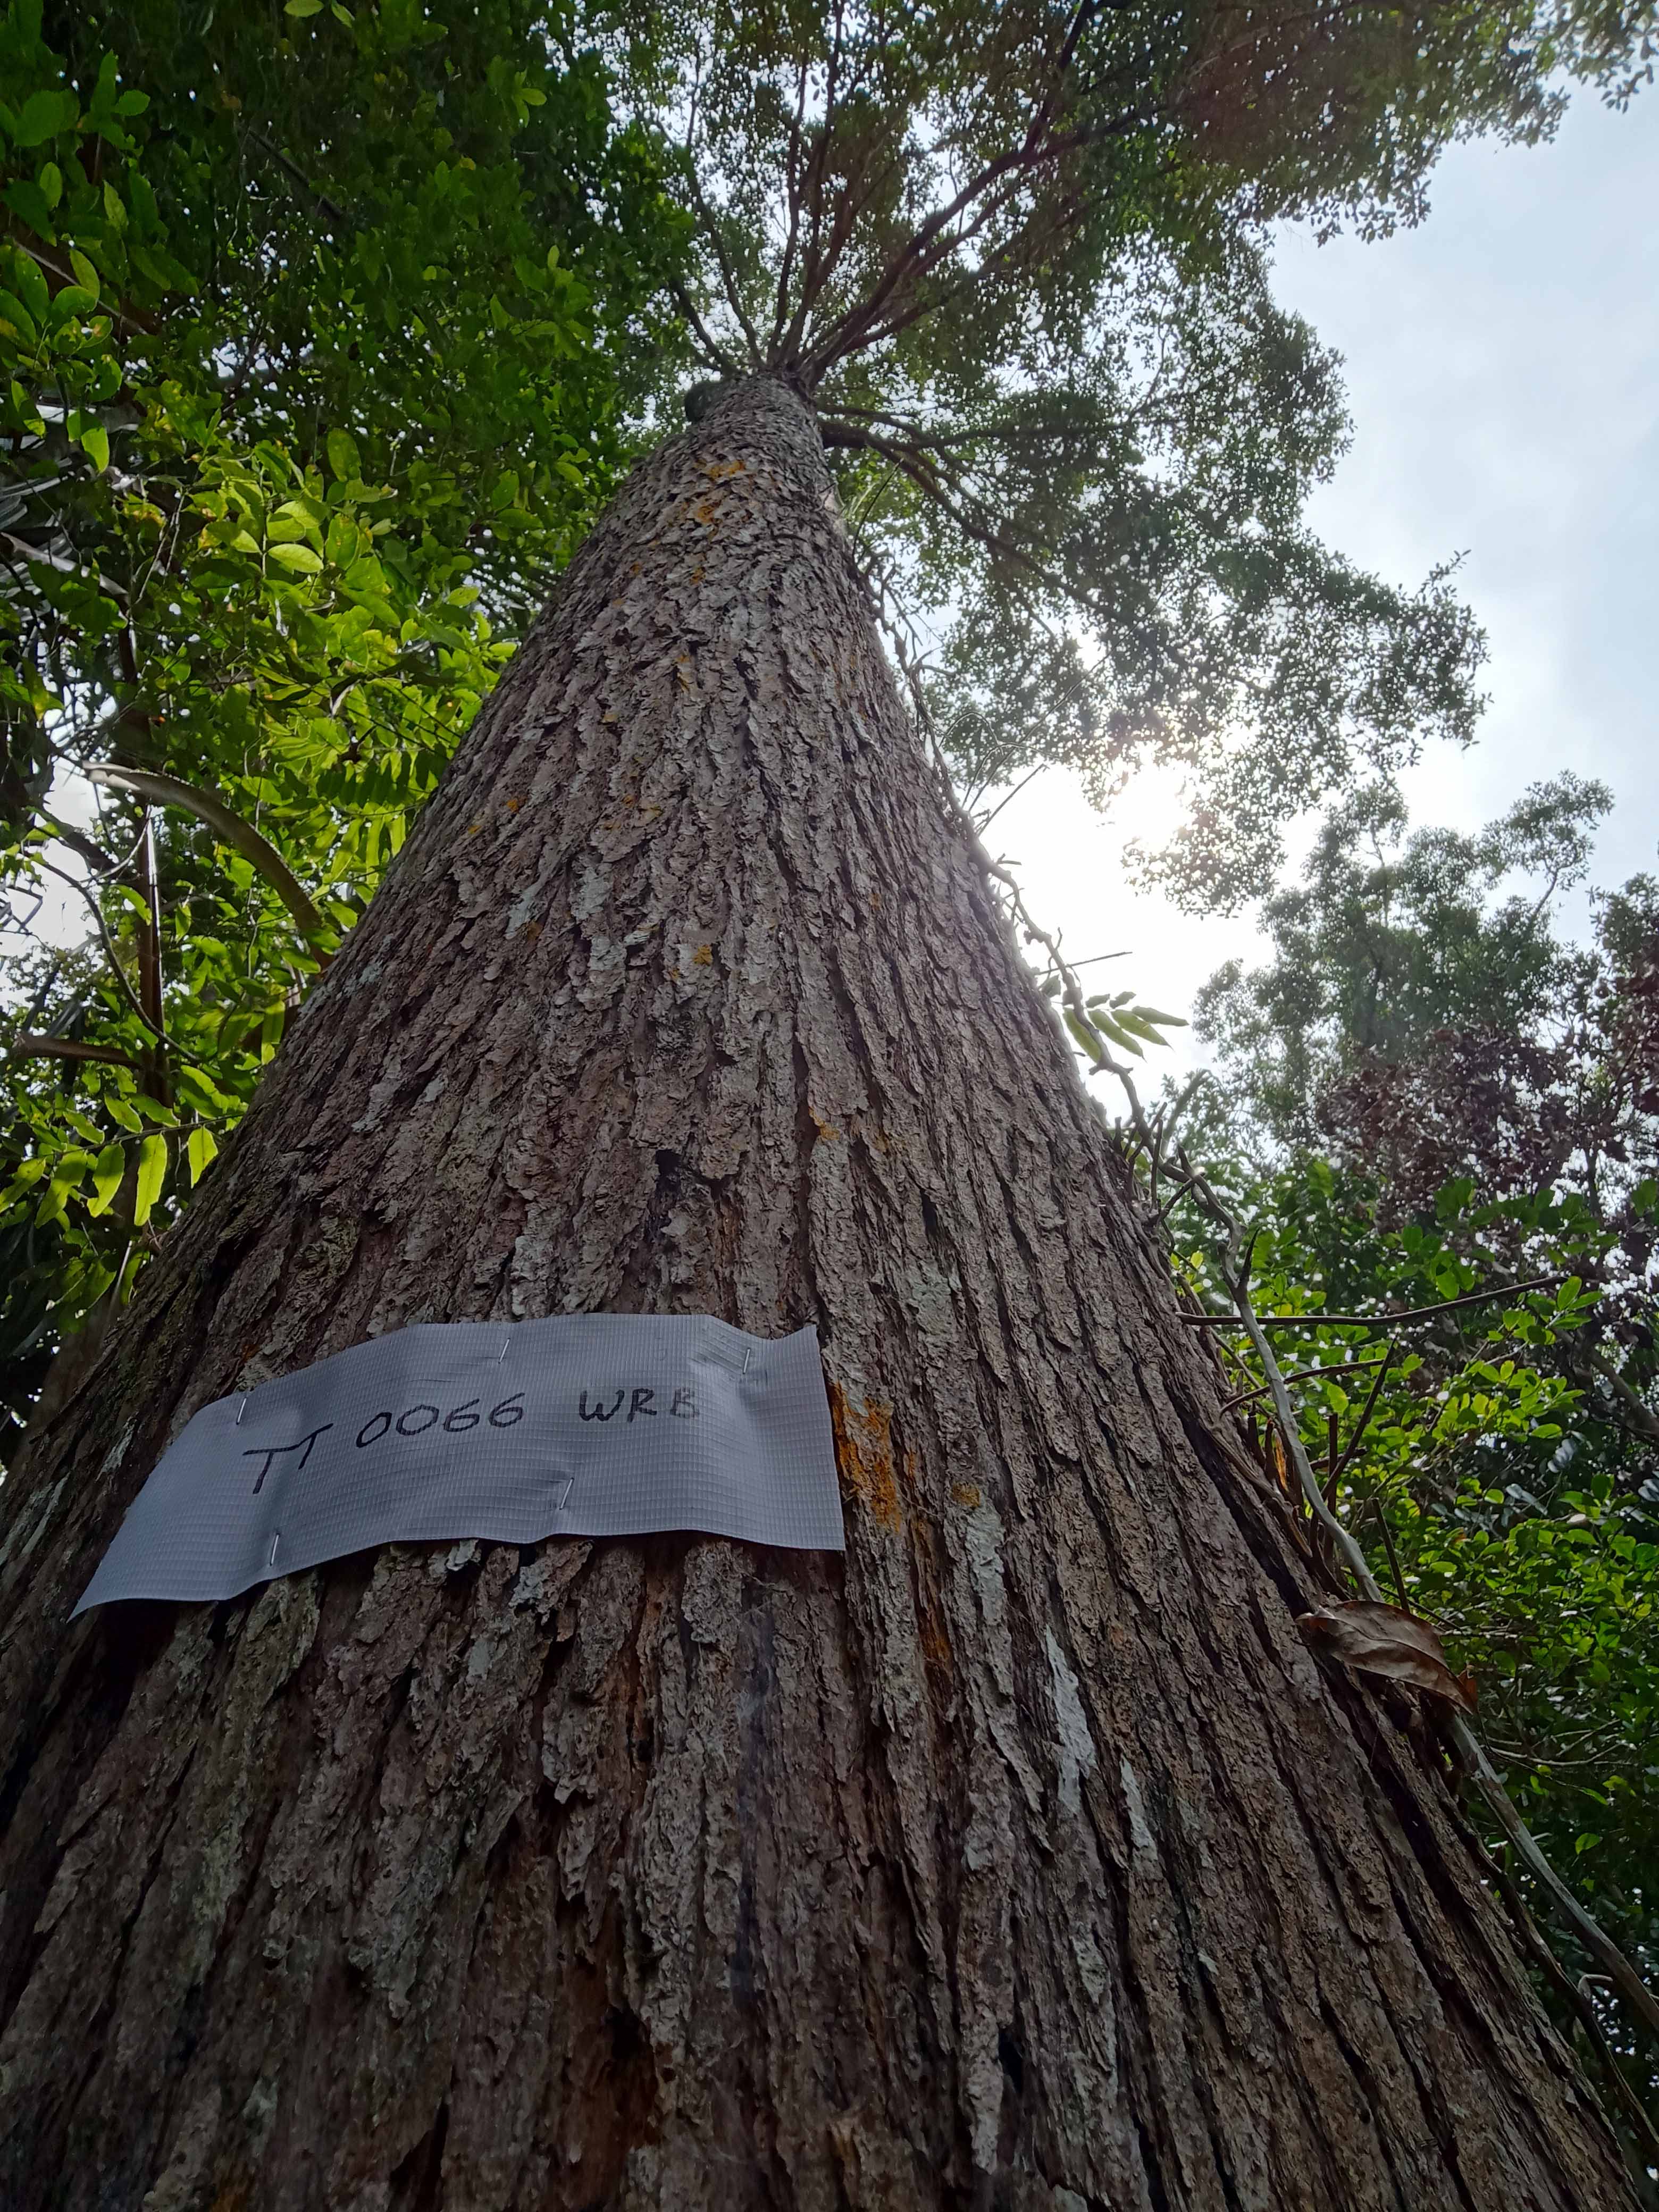 TT 0066 WRB